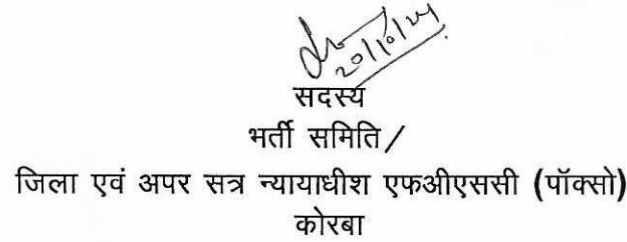 20/10/24
सदस्य
भर्ती समिति/
जिला एवं अपर सत्र न्यायाधीश एफओएससी (पॉक्सो)
कोरबा